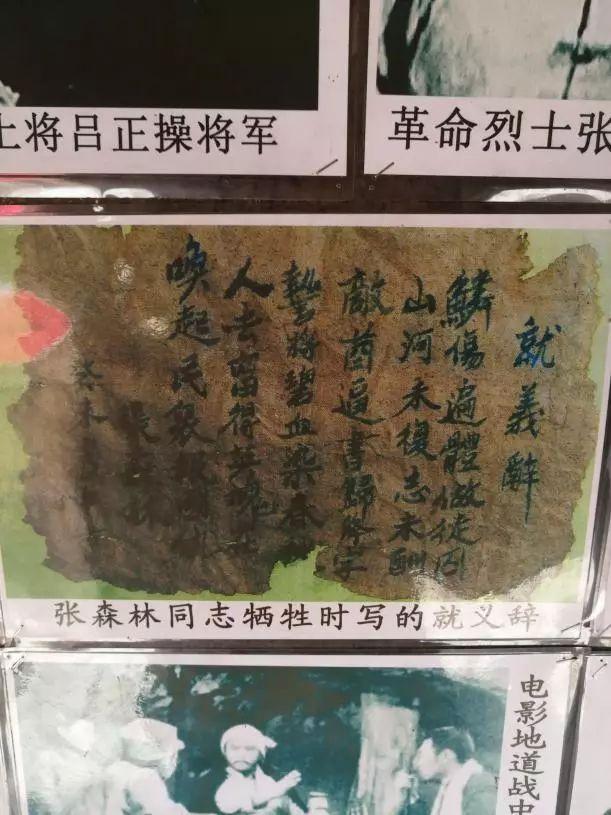 上将吕正操将军
革命烈士张
就義辭
鱗傷遍體做徒囚
山河未復志未酬
敵酋逼書歸降字
誓將碧血染春
人去留得英魂在
喚起民衆報
张森林同志牺牲时写的就义辞
电影地道战中